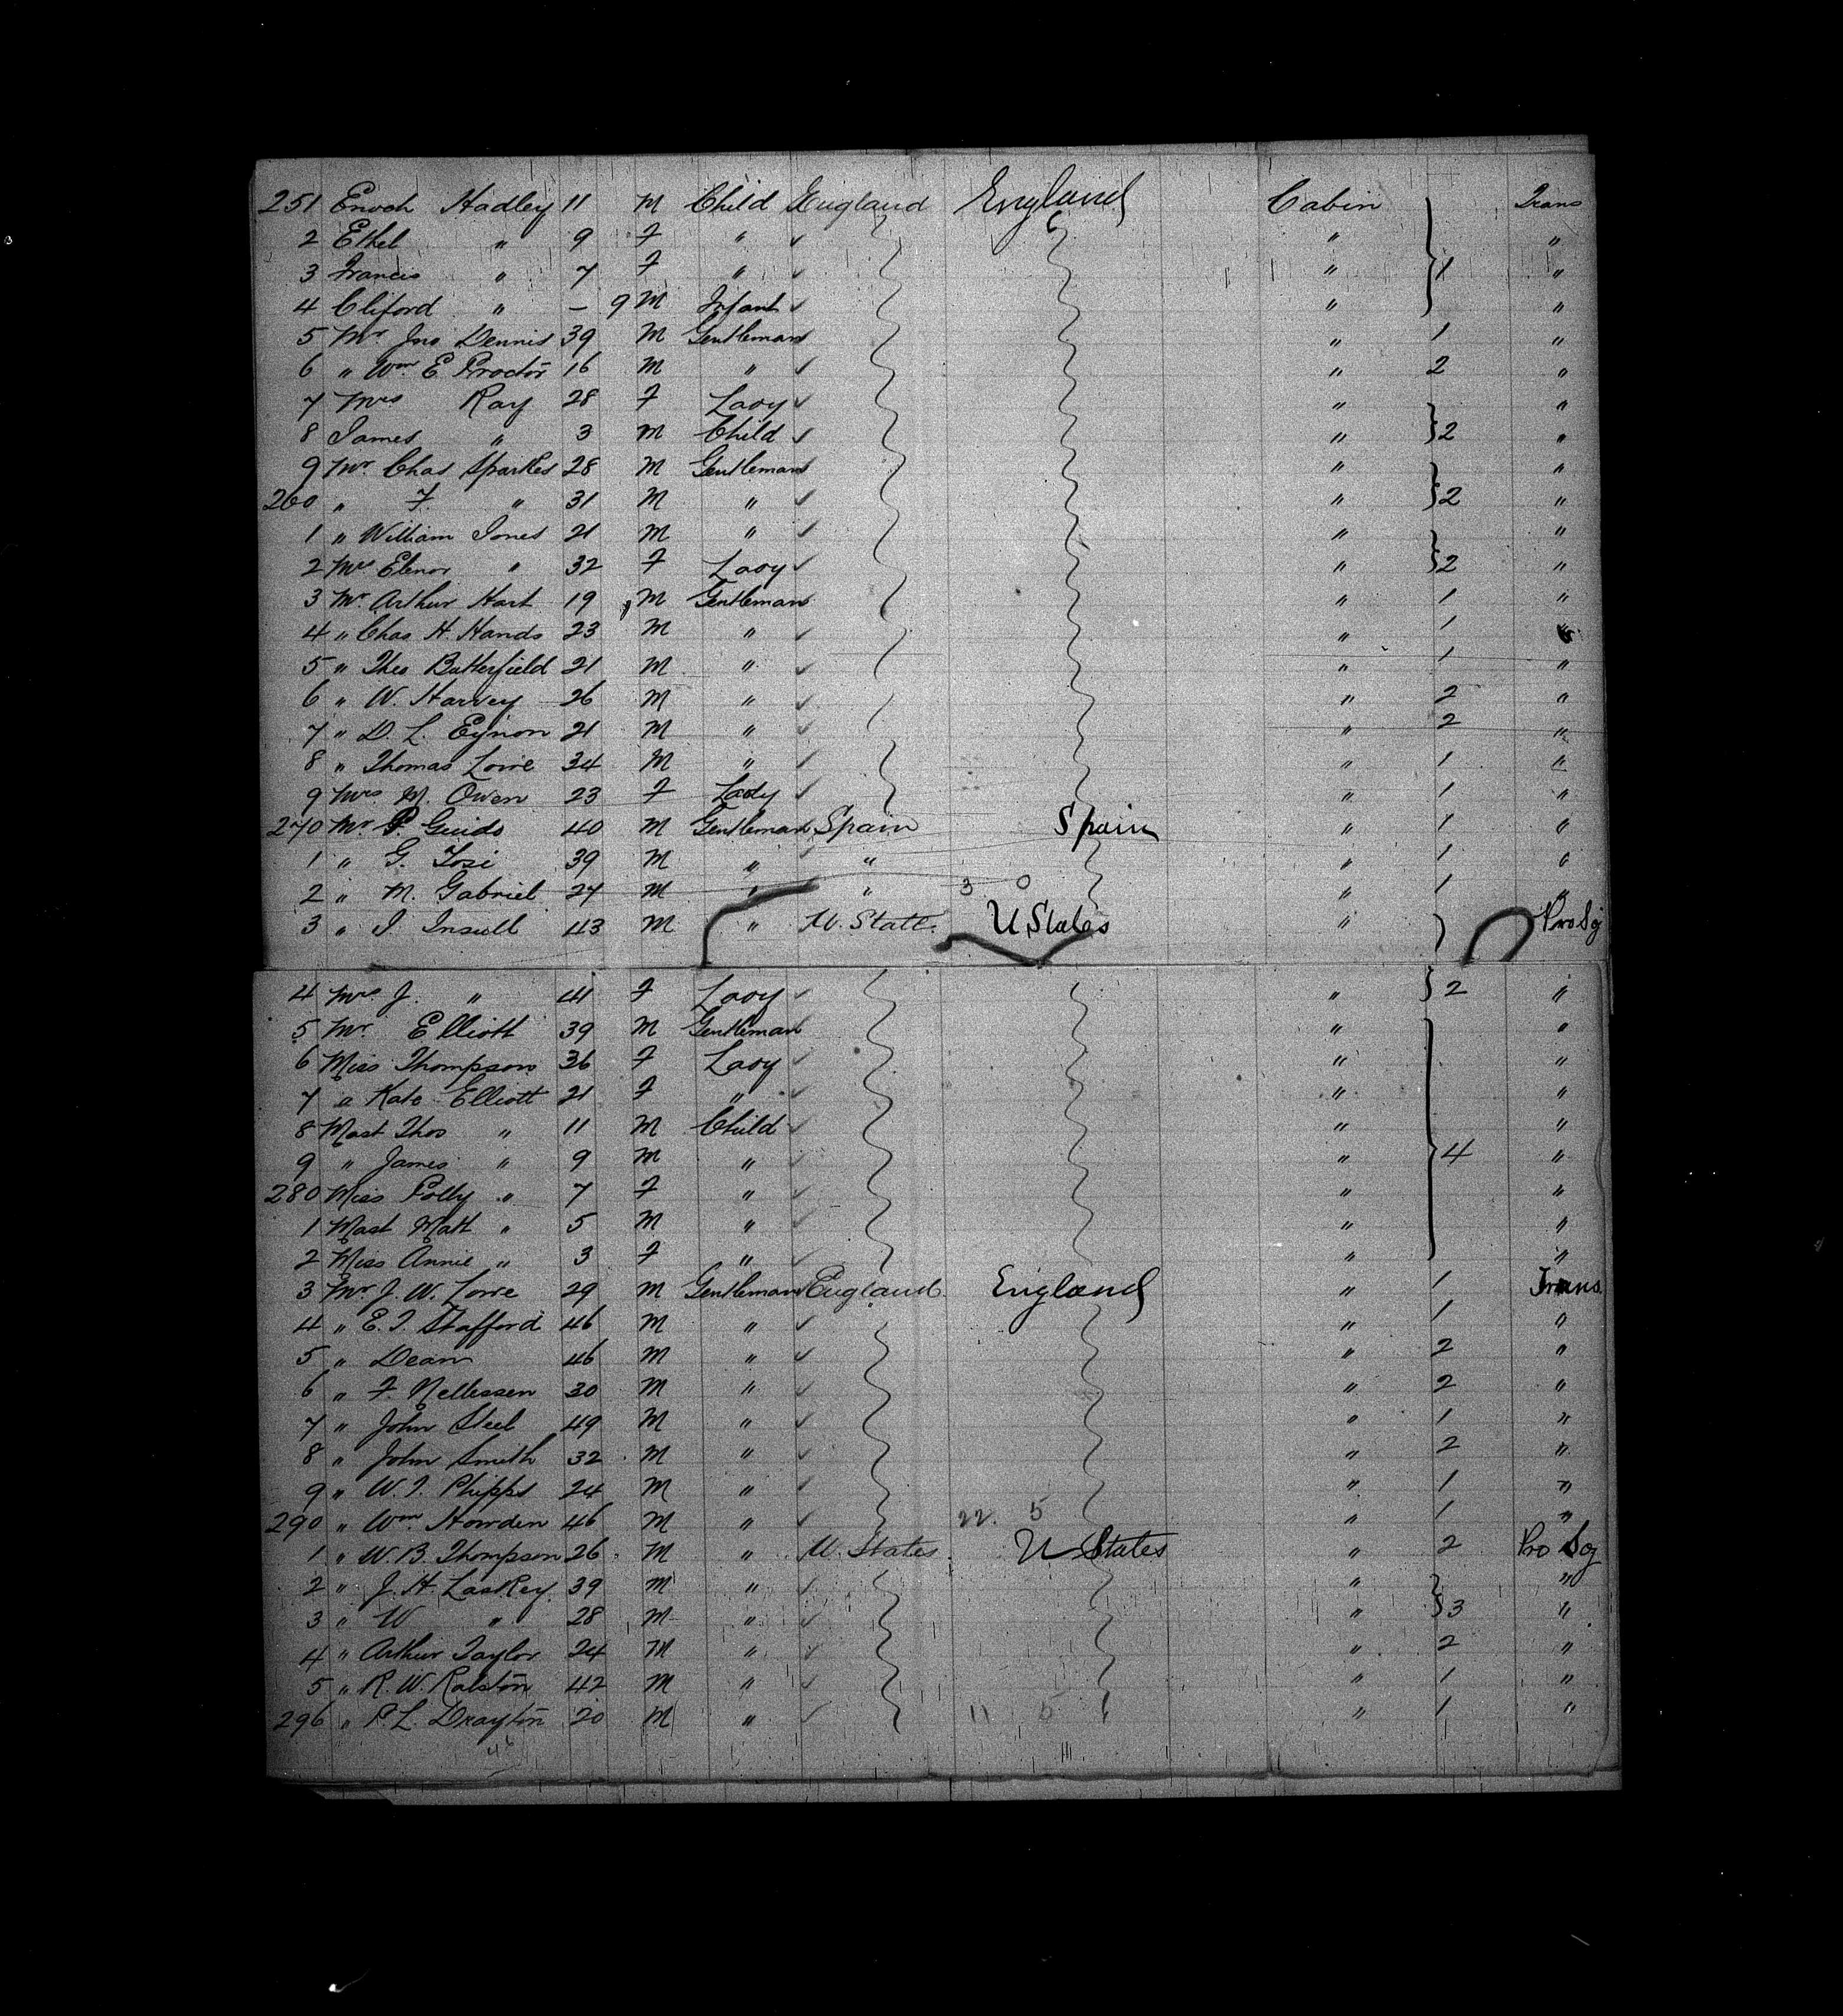 251 Enoch Hadley 11 M Child England England Cabin Trans
2 Ethel " 9 F " " "
3 Francis " 7 F " " 1 "
4 Cliford " – 9 M Infant " "
5 Mr Jno Dennis 39 M Gentleman " 1 "
6 " Wm E Proctor 16 M " " 2 "
7 Mrs Ray 28 F Lady " "
8 James " 3 M Child " 2 "
9 Mr Chas Sparkes 28 M Gentleman " "
260 " F. " 31 M " " 2 "
1 " William Jones 21 M " " "
2 Mrs Elenor " 32 F Lady " 2 "
3 Mr Arthur Hart 19 M Gentleman " 1 "
4 " Chas H. Hands 23 M " " 1 "
5 " Theo Butterfield 21 M " " 1 "
6 " W. Harvey 26 M " " 2 "
7 " D. L. Eynon 21 M " " 2 "
8 " Thomas Lowe 34 M " " 1 "
9 Mrs M. Owen 23 F Lady " 1 "
270 Mr P. Guido 40 M Gentleman Spain Spain " 1 "
1 " G. Tosi 39 M " " " 1 "
2 " M. Gabriel 27 M " " 3 0 " 1 "
3 " I Insull 43 M " U. State. U States " Pro Sg
4 Mrs J. " 41 F Lady " 2 "
5 Mr Elliott 39 M Gentleman " "
6 Miss Thompson 36 F Lady " "
7 " Kate Elliott 21 F " " "
8 Mast Thos " 11 M Child " "
9 " James " 9 M " " 4 "
280 Miss Polly " 7 F " " "
1 Mast Matt " 5 M " " "
2 Miss Annie " 3 F " " "
3 Mr J. W. Lowe 29 M Gentleman England England " 1 Trans
4 " E. T. Stafford 46 M " " 1 "
5 " Dean 46 M " " 2 "
6 " F. Nellessen 30 M " " 2 "
7 " John Steel 49 M " " 1 "
8 " John Smith 32 M " " 2 "
9 " W. T. Phipps 24 M " " 1 "
290 " Wm Howden 46 M " 22. 5 " 1 "
1 " W. B. Thompson 26 M " U. States U States " 2 Pro Sg
2 " J. H. Laskey 39 M " " "
3 " W " 28 M " " 3 "
4 " Arthur Taylor 24 M " " 2 "
5 " R. W. Ralston 42 M " " 1 "
296 " P. L. Drayton 20 M " 11 5 " 1 "
46